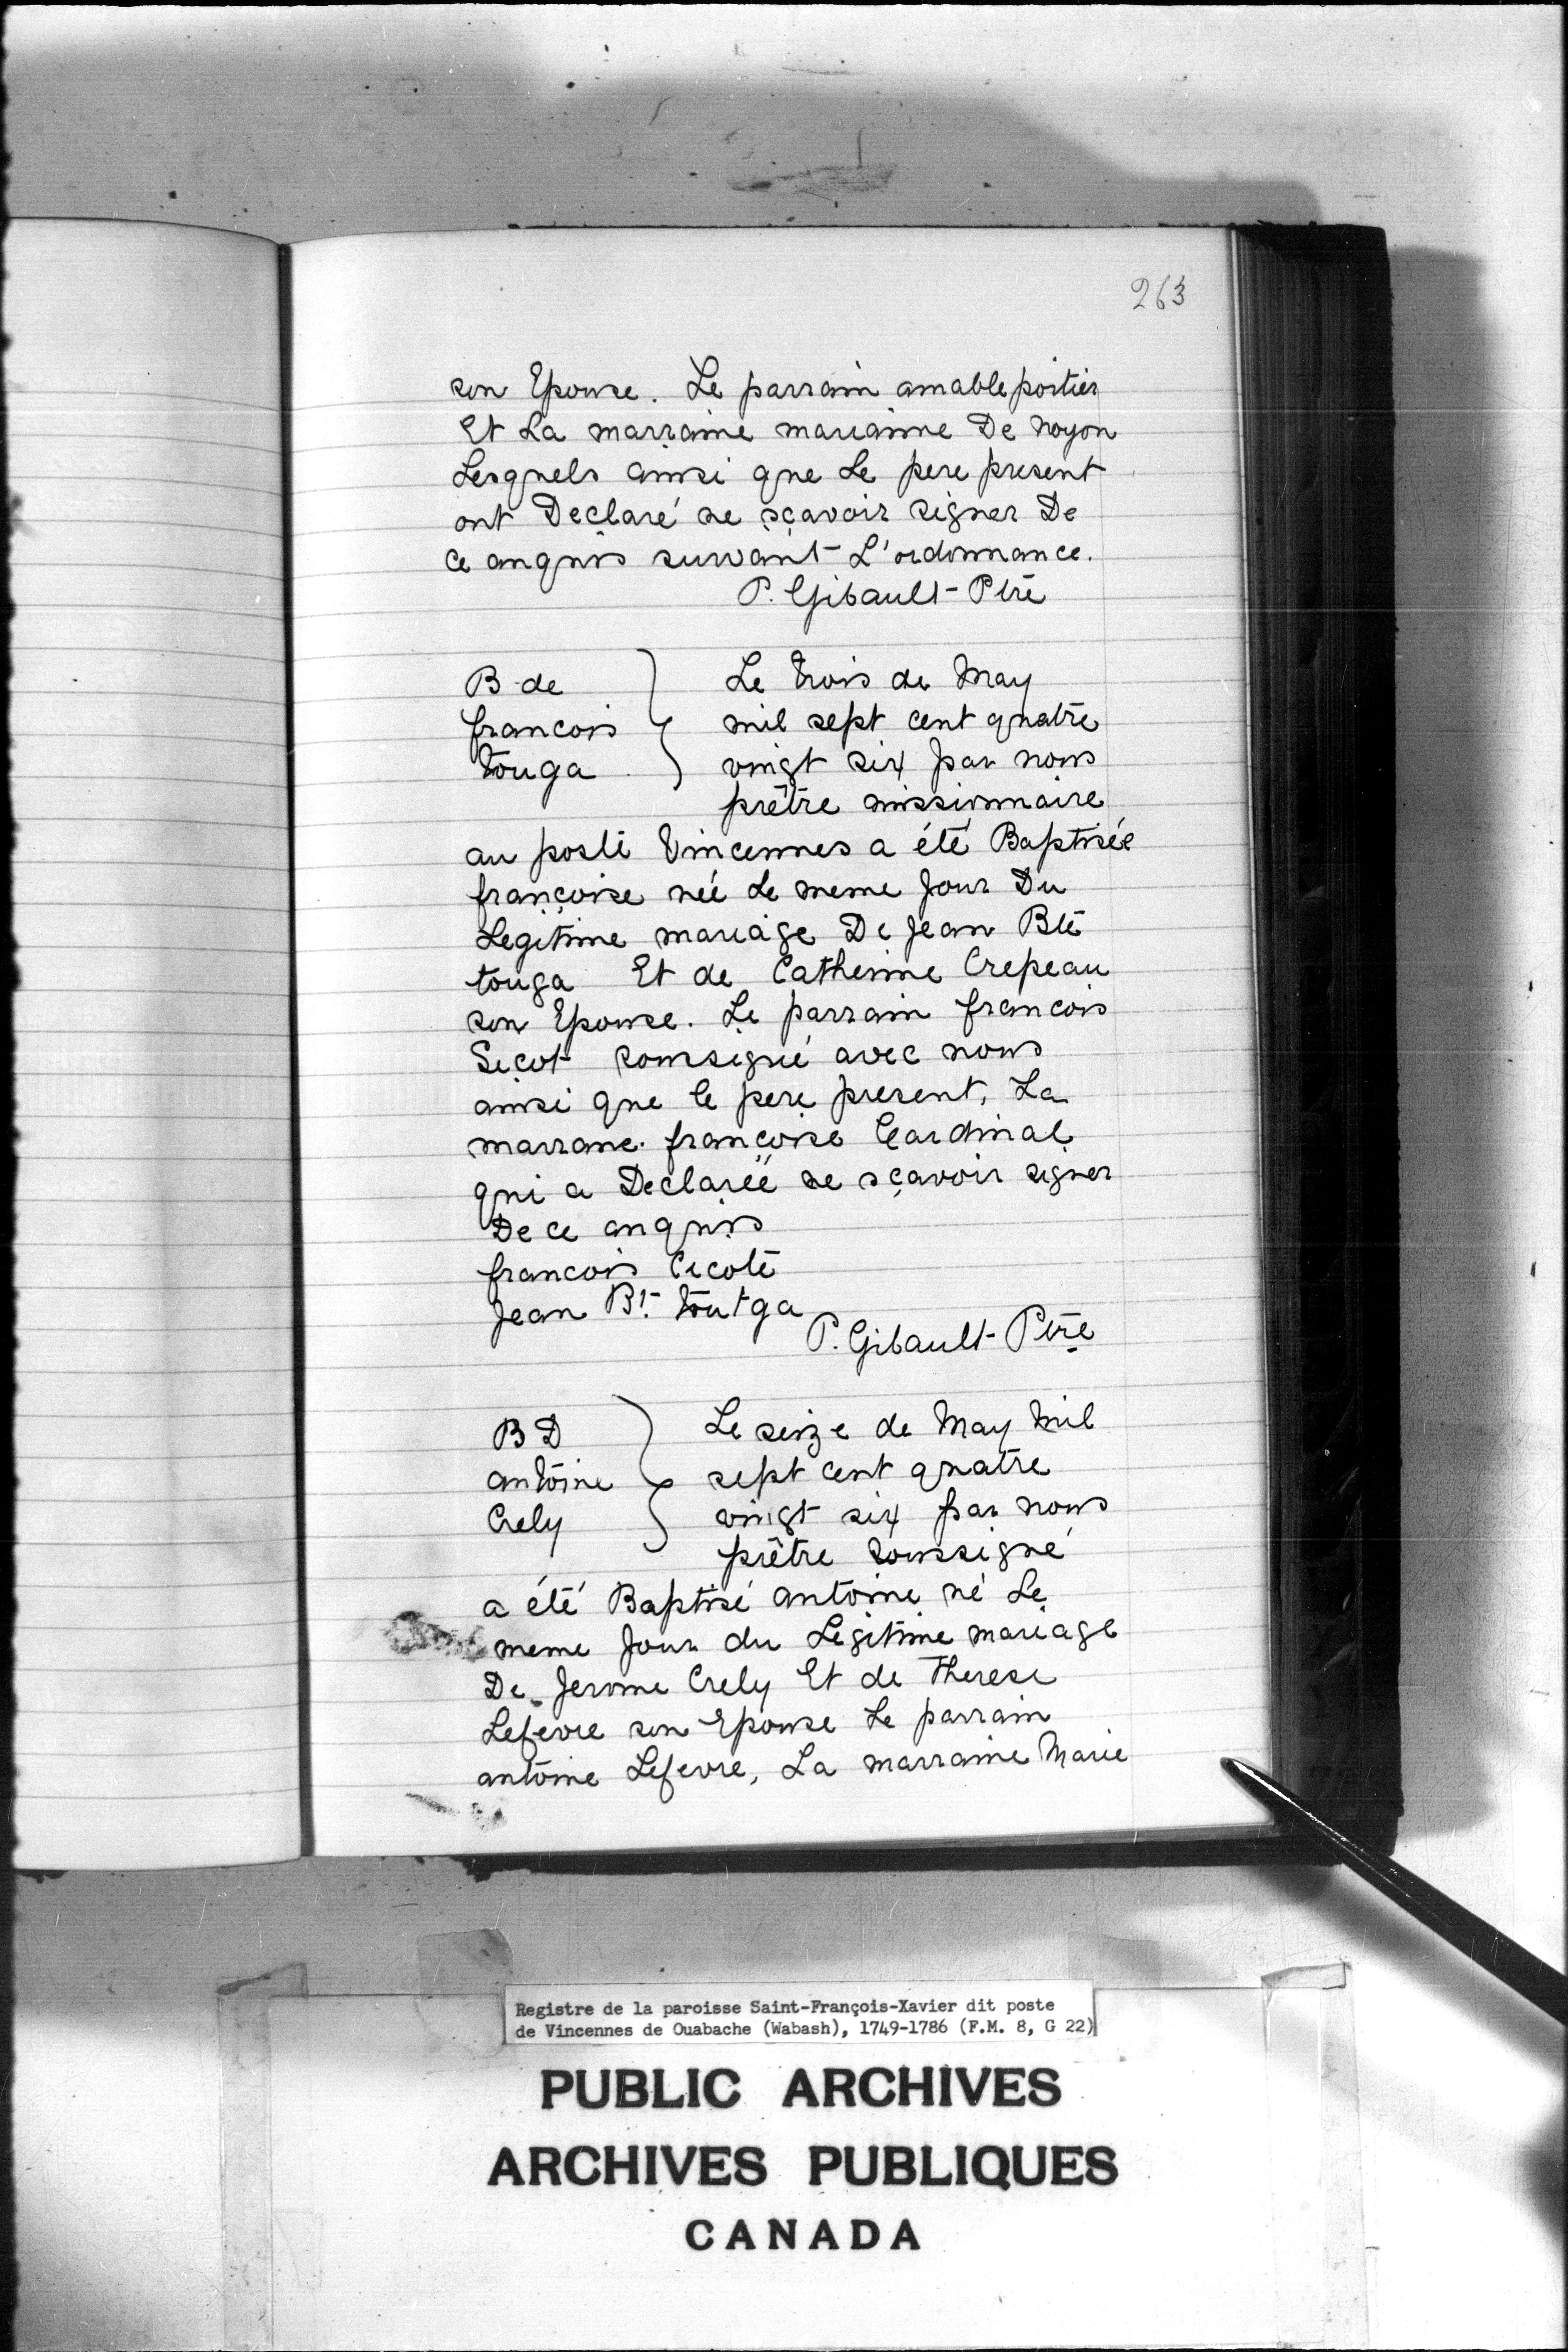 263
son Epouse. Le parrain amable poitier
Et La marraine marianne De noyon
Lesquels ainsi que Le pere present
ont Declaré ne sçavoir signer De
ce anquis suivant L'ordonnance.
P. Gibault Ptre
B de
francois
touga
Le trois de May
mil sept cent quatre
vingt six par nous
prêtre missionnaire
au poste Vincennes a été Baptisée
françoise née Le meme Jour Du
Legitime mariage De Jean Bte
touga Et de Catherine Crepeau
son Epouse. Le parrain francois
Sicot soussigné avec nous
ainsi que le pere present, La
marrane françoise Cardinal
qui a Declareé ne sçavoir signer
De ce anquis
francois Cicote
Jean Bt. toutga
P. Gibault Ptre
B D
antoine
Crely
Le seize de May mil
sept cent quatre
vingt six par nous
prêtre soussigné
a été Baptisé antoine né Le
meme Jour du Legitime mariage
De Jerome Crely Et de Therese
Lefevre son Epouse Le parrain
antoine Lefevre, La marraine Marie
Registre de la paroisse Saint-François-Xavier dit poste
de Vincennes de Ouabache (Wabash), 1749-1786 (F.M. 8, G 22)
PUBLIC ARCHIVES
ARCHIVES PUBLIQUES
CANADA